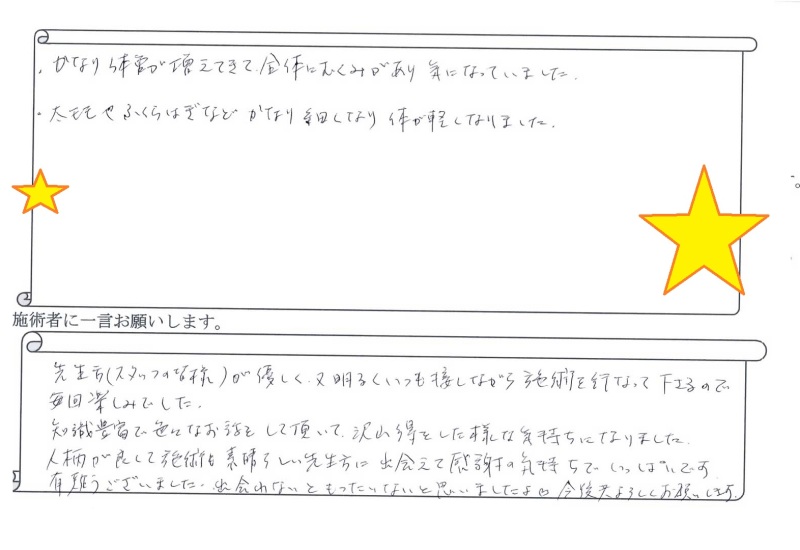 ・かなり体重が増えてきて、全体にむくみがあり 気になっていました。
・太ももやふくらはぎなど かなり細くなり 体が軽くなりました。
施術者に一言お願いします。
先生方(スタッフの皆様)が優しく、又明るくいつも接しながら施術を行なって下さるので
毎回楽しみでした。
知識豊富で色々なお話をして頂いて、沢山得をした様な気持ちになりました。
人柄が良くて施術も素晴らしい先生方に出会えて感謝の気持ちでいっぱいです。
有難うございました。出会わないともったいないと思いましたよ 今後共よろしくお願いします。